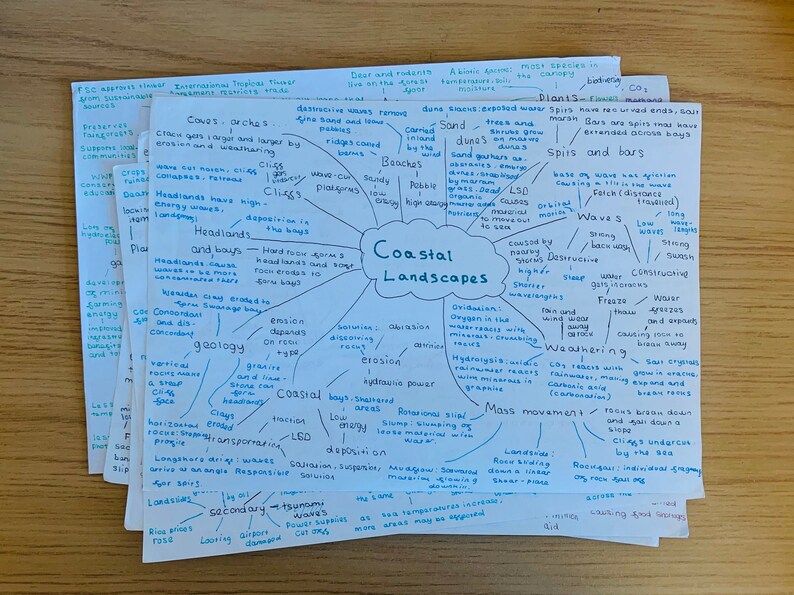 FSC approves timber
from sustainable
sources
International Tropical Timber
Agreement restricts trade
Deer and rodents
live on the forest
floor
A biotic factors:
temperature, soil,
moisture
most species in
the canopy
biodiversity
Plants - flower
CO2
methane
Preserves
rainforests
Supports local
communities
Caves, arches..
crack gets larger and larger by
erosion and weathering
destructive waves remove
fine sand and leave
pebbles
ridges called
berms
Beaches
sandy
low
energy
Pebble
high energy
Carried
inland
by the
wind
dune slacks: exposed water
Sand
dunes
trees and
shrubs grow
on mature
dunes
Sand gathers as
obstacles. embryo
dunes. Stabilised
by marram
grass. Dead
organic
matter adds
nutrients
Spits have recurved ends, salt
marsh
Bars are spits that have
extended across bays
Spits and bars
LSD
causes
material
to move out
to sea
wave cut notch, cliff
collapses, retreat
Cliff
gets
undercut
wave-cut
platforms
Cliffs
Headlands have high-
energy waves,
landforms
deposition in
the bays
Headlands
and bays
Hard rock forms
headlands and soft
rock erodes to
form bays
Headlands cause
waves to be more
concentrated there
Coastal
Landscapes
base of wave has friction
causing a tilt in the wave
Fetch (distance
travelled)
orbital
motion
Waves
long
wave-
lengths
Low
waves
Strong
swash
constructive
caused by
nearby
storms
Strong
back wash
Destructive
higher
Steep
Shorter
wavelengths
water
gets in cracks
Freeze
thaw
Water
freezes
and expands
causing rock to
break away
rain and
wind wear
away
at rock
Weathering
Oxidation:
Oxygen in the
water reacts with
minerals, crumbling
rocks
Hydrolysis: acidic
rainwater reacts
with minerals in
graphite
CO2 reacts with
rainwater, making
Carbonic acid
(carbonation)
Salt crystals
grow in cracks,
expand and
break rocks
Wealden clay eroded to
form Swanage bay
Concordant
and dis-
concordant
geology
erosion
depends
on rock
type
vertical
rocks make
a steep
cliff
face
granite
and lime-
stone can
form
headlands
Clays
eroded
horizontal
rocks: stepped
profile
solution:
dissolving
rocks
abrasion
attrition
erosion
hydraulic power
Coastal
bays, sheltered
areas
Low
energy
deposition
traction
LSD
transportation
saltation, suspension,
solution
Longshore drift: waves
arrive at an angle. Responsible
for spits
Rotational slip/
Slump: slumping of
loose material with
water.
Mass movement
rocks break down
and fall down a
slope
Cliffs undercut
by the sea
Mudflow: Saturated
material flowing
downhill
Landslide:
Rock sliding
down a linear
shear-plane
Rockfall: individual fragments
of rock fall off
Landslides
by oil
secondary
tsunami
waves
Rice prices
rose
Looting
airport
damaged
Power supplies
cut off
the same
as sea temperatures increase,
more areas may be affected
across the
aid
causing food shortages